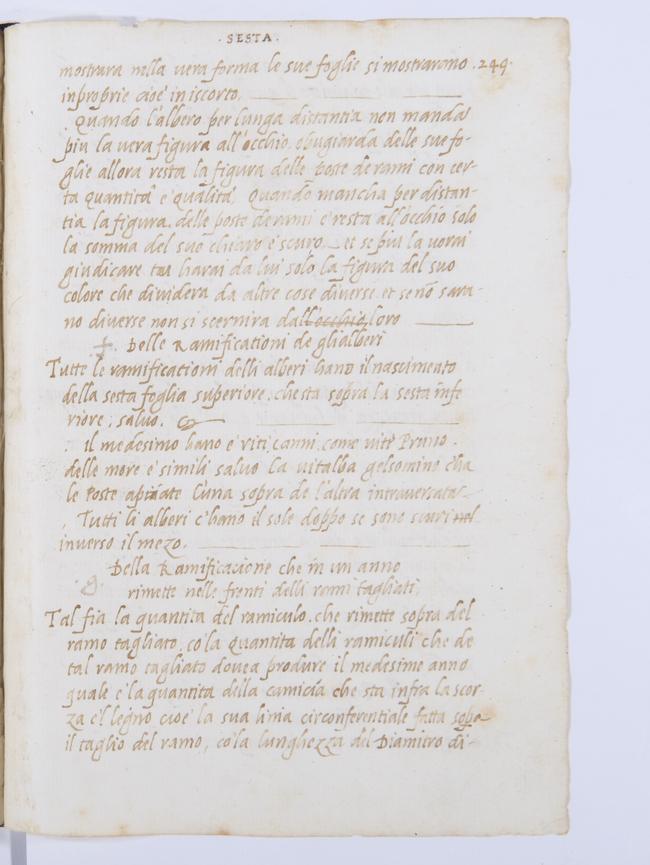 · SESTA ·
mostrara nella vera forma le sue foglie si mostrarono . 249 ·
inproprie cioe in iscorto.
. Quando l'albero per lunga distantia non manda
piu la vera figura all'occhio, obugiarda delle sue fo-
glie allora resta la figura delle poste de rami con cer-
ta quantita e qualita, Quando mancha per distan-
tia la figura delle poste de rami e resta all'occhio solo
la somma del suo chiaro e scuro et se piu la vorai
giudicare tu harai da lui solo la figura del suo
colore che dividera da altre cose diverse et se nõ sara-
no diverse non si scernira dall'occhio loro
Delle Ramificationi de gli alberi
Tutte le ramificationi delli alberi hano il nascimento
della sesta foglia superiore. che sta sopra la sesta infe
riore ; salvo.
. il medesimo hano e viti, canni, come vite Pruno .
delle more e simili salvo la vitalba gelsomino c'ha
le Poste l'una sopra de l'altra intraversata
. Tutti li alberi c'hano il sole doppo se sono scuri nel
inverso il mezo.
Della Ramificacione che in un anno
rimette nelle frenti delli rami tagliati,
Tal fia la quantita del ramiculo. che rimette sopra del
ramo tagliato, co la quantita delli ramiculi che de
tal ramo tagliato dovea produre il medesime anno
quale e la quantita della camicia che sta infra la scor-
za e'l legno cioe la sua linia circonferentiale fatta sopa
il taglio del ramo, co la lunghezza del Diamitro di-